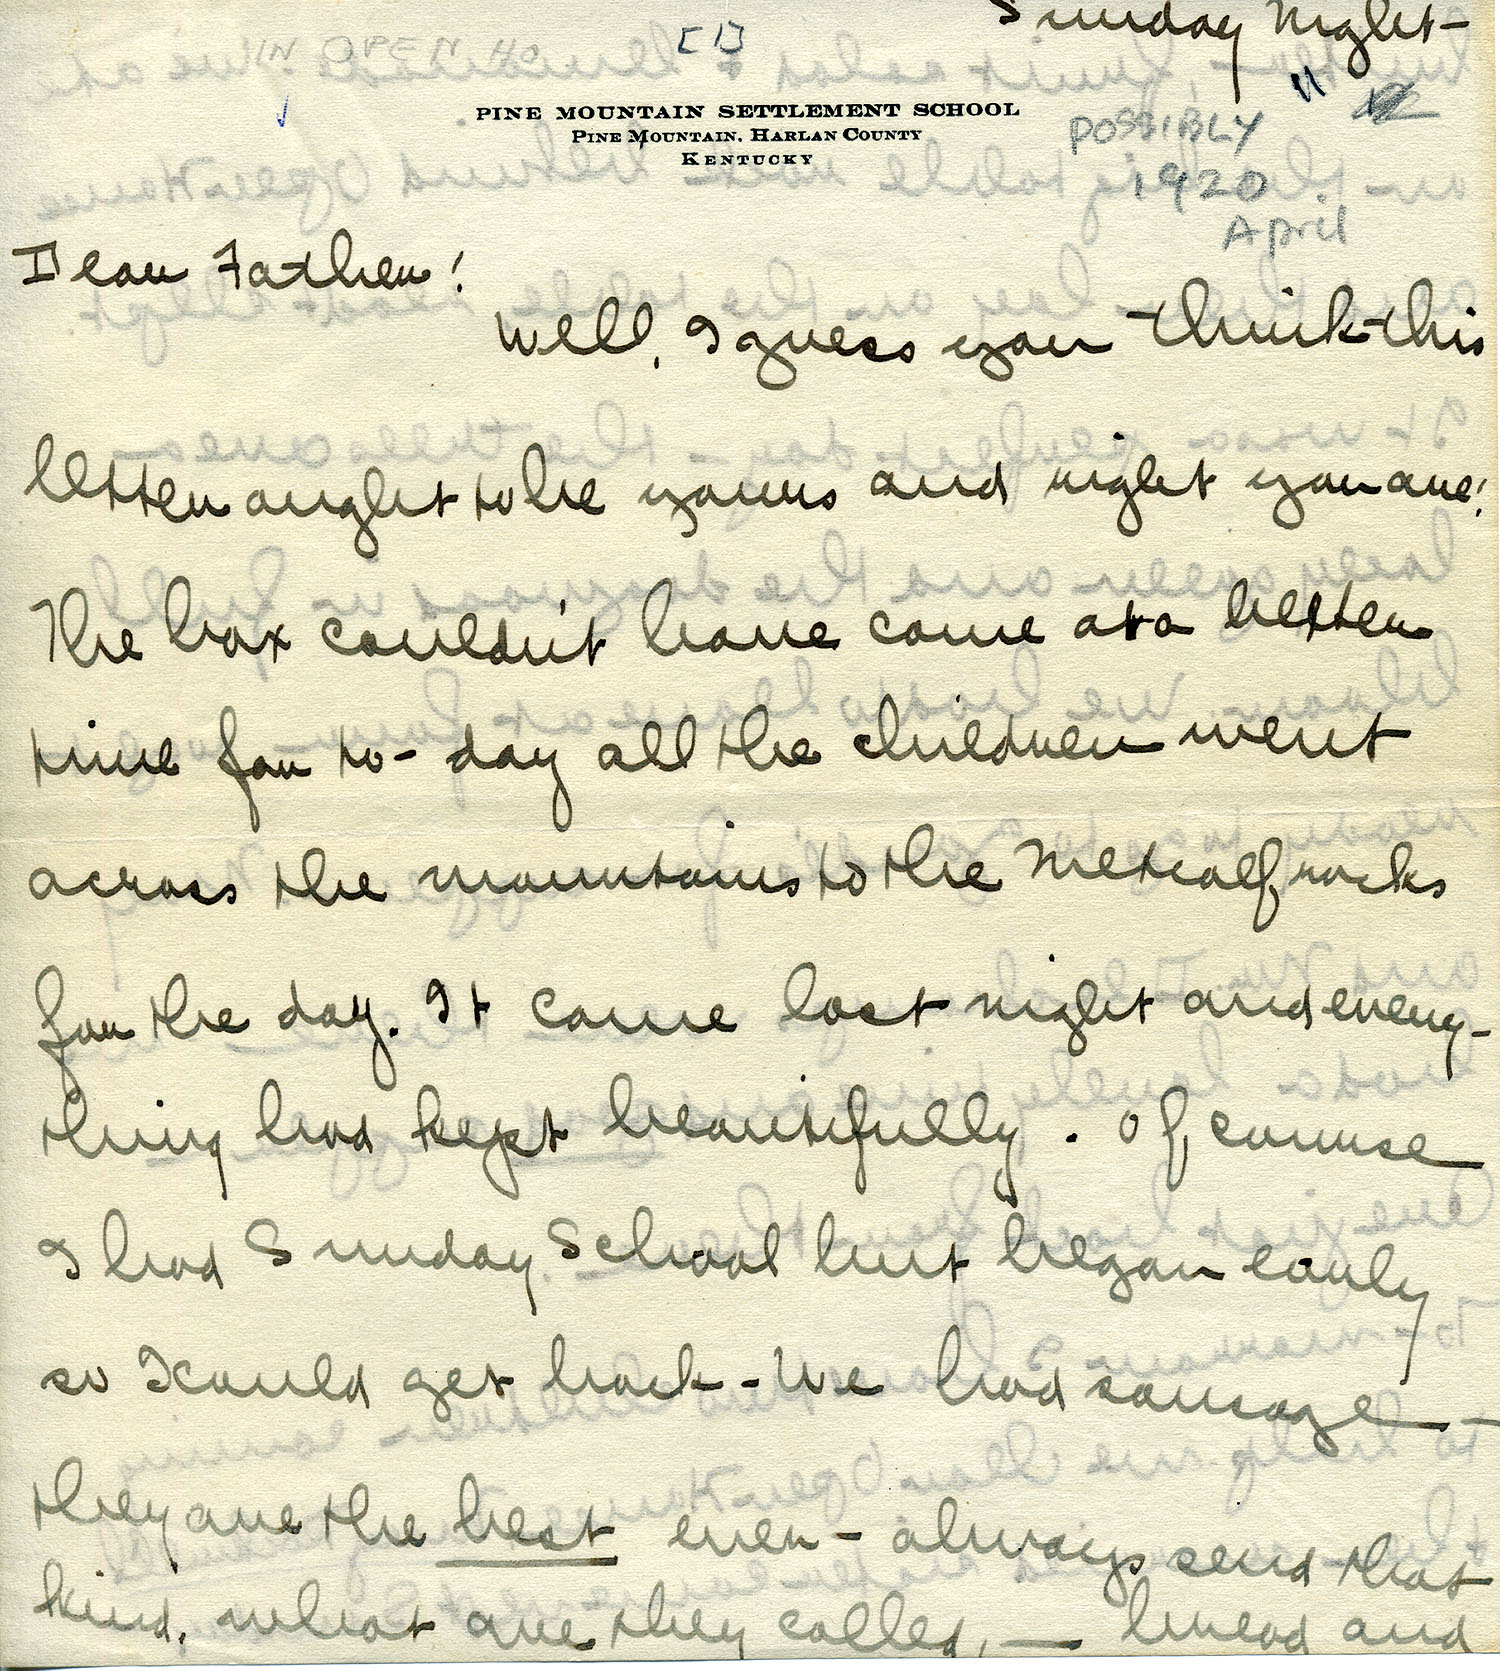 Sunday Night-
IN OPEN HO
[1]
"
PINE MOUNTAIN SETTLEMENT SCHOOL
PINE MOUNTAIN, HARLAN COUNTY
KENTUCKY
POSSIBLY
1920
April
Dear Father!
Well, I guess you think this
letter ought to be yours and right you are!
The box couldn't have come at a better
time for to-day all the children went
across the mountains to the Metcalf rocks
for the day. It came last night and every-
thing had kept beautifully. Of course
I had Sunday School but began early
so I could get back - We had sausage -
they are the best ever - always send that
kind, what are they called, — bread and